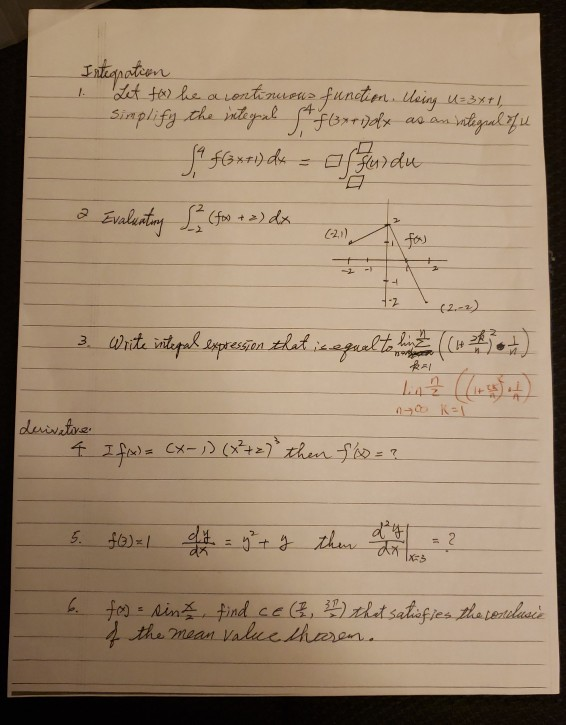 Integration
1. Let f(x) be a continuous function. Using u=3x+1,
simplify the integral ∫₁⁴ f(3x+1)dx as an integral of u
∫₁⁴ f(3x+1) dx = □∫□^□ f(u) du
2 Evaluating ∫₋₂² (f(x) + 2) dx
2
(-2,1) 1 f(x)
-2 -1 1 2
-1
-2 (2,-2)
3. Write integral expression that is equal to lim Σₖ₌₁ⁿ ((1+ 2k/n)² • 1/n)
lim n→∞ Σ K=1 n ((1+ 2k/n)² • 1/n)
derivative.
4 If f(x) = (x-1) (x²+2)³ then f'(x) = ?
5. f(3)=1 dy/dx = y²+ y then d²y/dx |x=3 = ?
6. f(x) = sin x/2, find c ∈ (π/2, 3π/2) that satisfies the conclusio
of the mean value theorem.